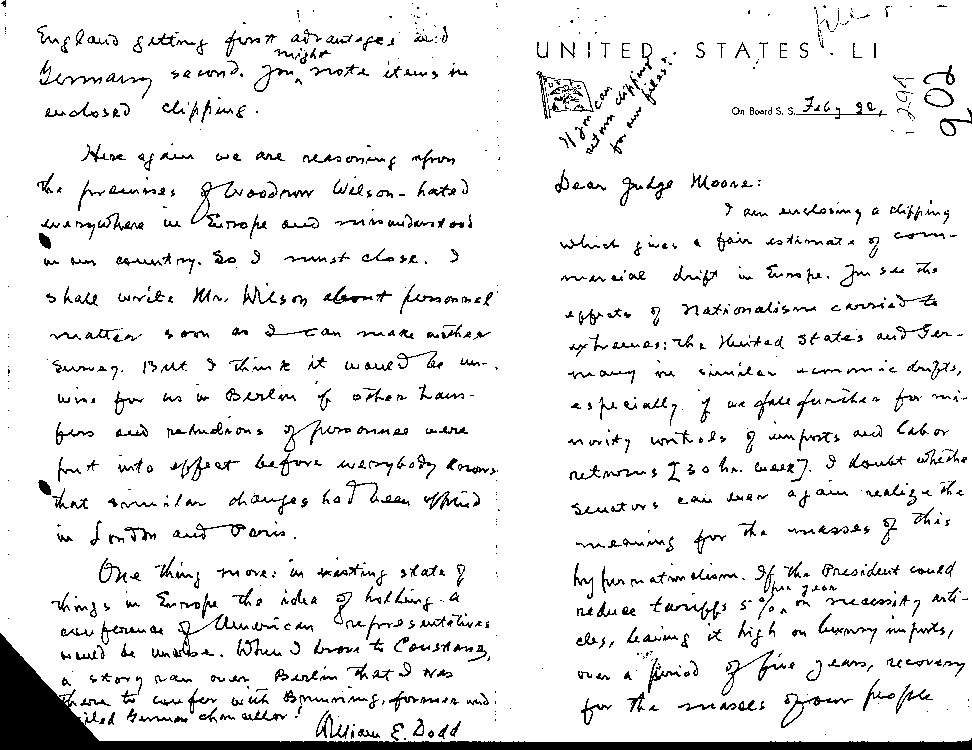 England getting first advantages and
might
Germany second. You note items in
enclosed clipping.
Here again we are reasoning upon
the premises of Woodrow Wilson - hated
everywhere in Europe and misunderstood
in our country. So I must close. I
shall write Mr. Wilson about personnel
matter soon as I can make another
survey. But I think it would be un-
wise for us in Berlin if other trans-
fers and reductions of personnel were
put into effect before everybody knows
that similar changes had been applied
in London and Paris.
One thing more: in existing state of
things in Europe the idea of holding a
conference of American representatives
would be unwise. When I drove to Constanz,
a story ran over Berlin that I was
there to confer with Bruning, former and
exiled German chancellor.
William E. Dodd
file
UNITED · STATES · LI
If you can
return clipping
for our files?
On Board S. S. Feby 22,
1294
902
Dear Judge Moore:
I am enclosing a clipping
which gives a fair estimate of com-
mercial drift in Europe. You see the
effects of Nationalism carried to
extremes: the United States and Ger-
many in similar economic drifts,
especially if we fall further for mi-
nority controls of imports and labor
returns [30 hr. week]. I doubt whether
Senators can ever again realize the
meaning for the masses of this
hypernationalism. If the President could
per year
reduce tariffs 5% on necessity arti-
cles, leaving it high on luxury imports,
over a period of five years, recovery
for the masses of our people